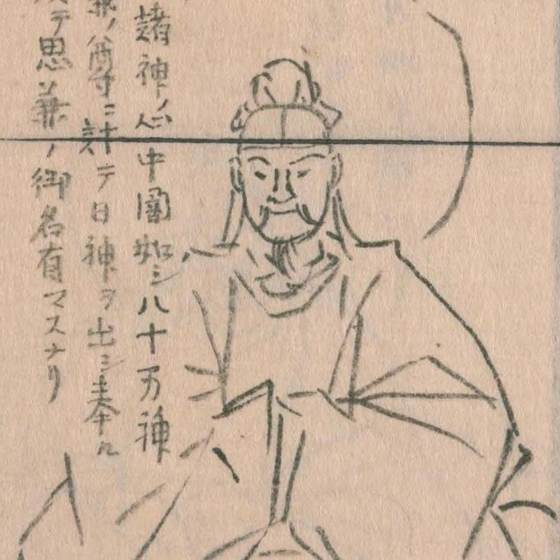 諸神心中闇如シ八十万神
兼ノ尊ニ計テ日神ヲ出シ奉ル
テ思兼ノ御名有マスナリ